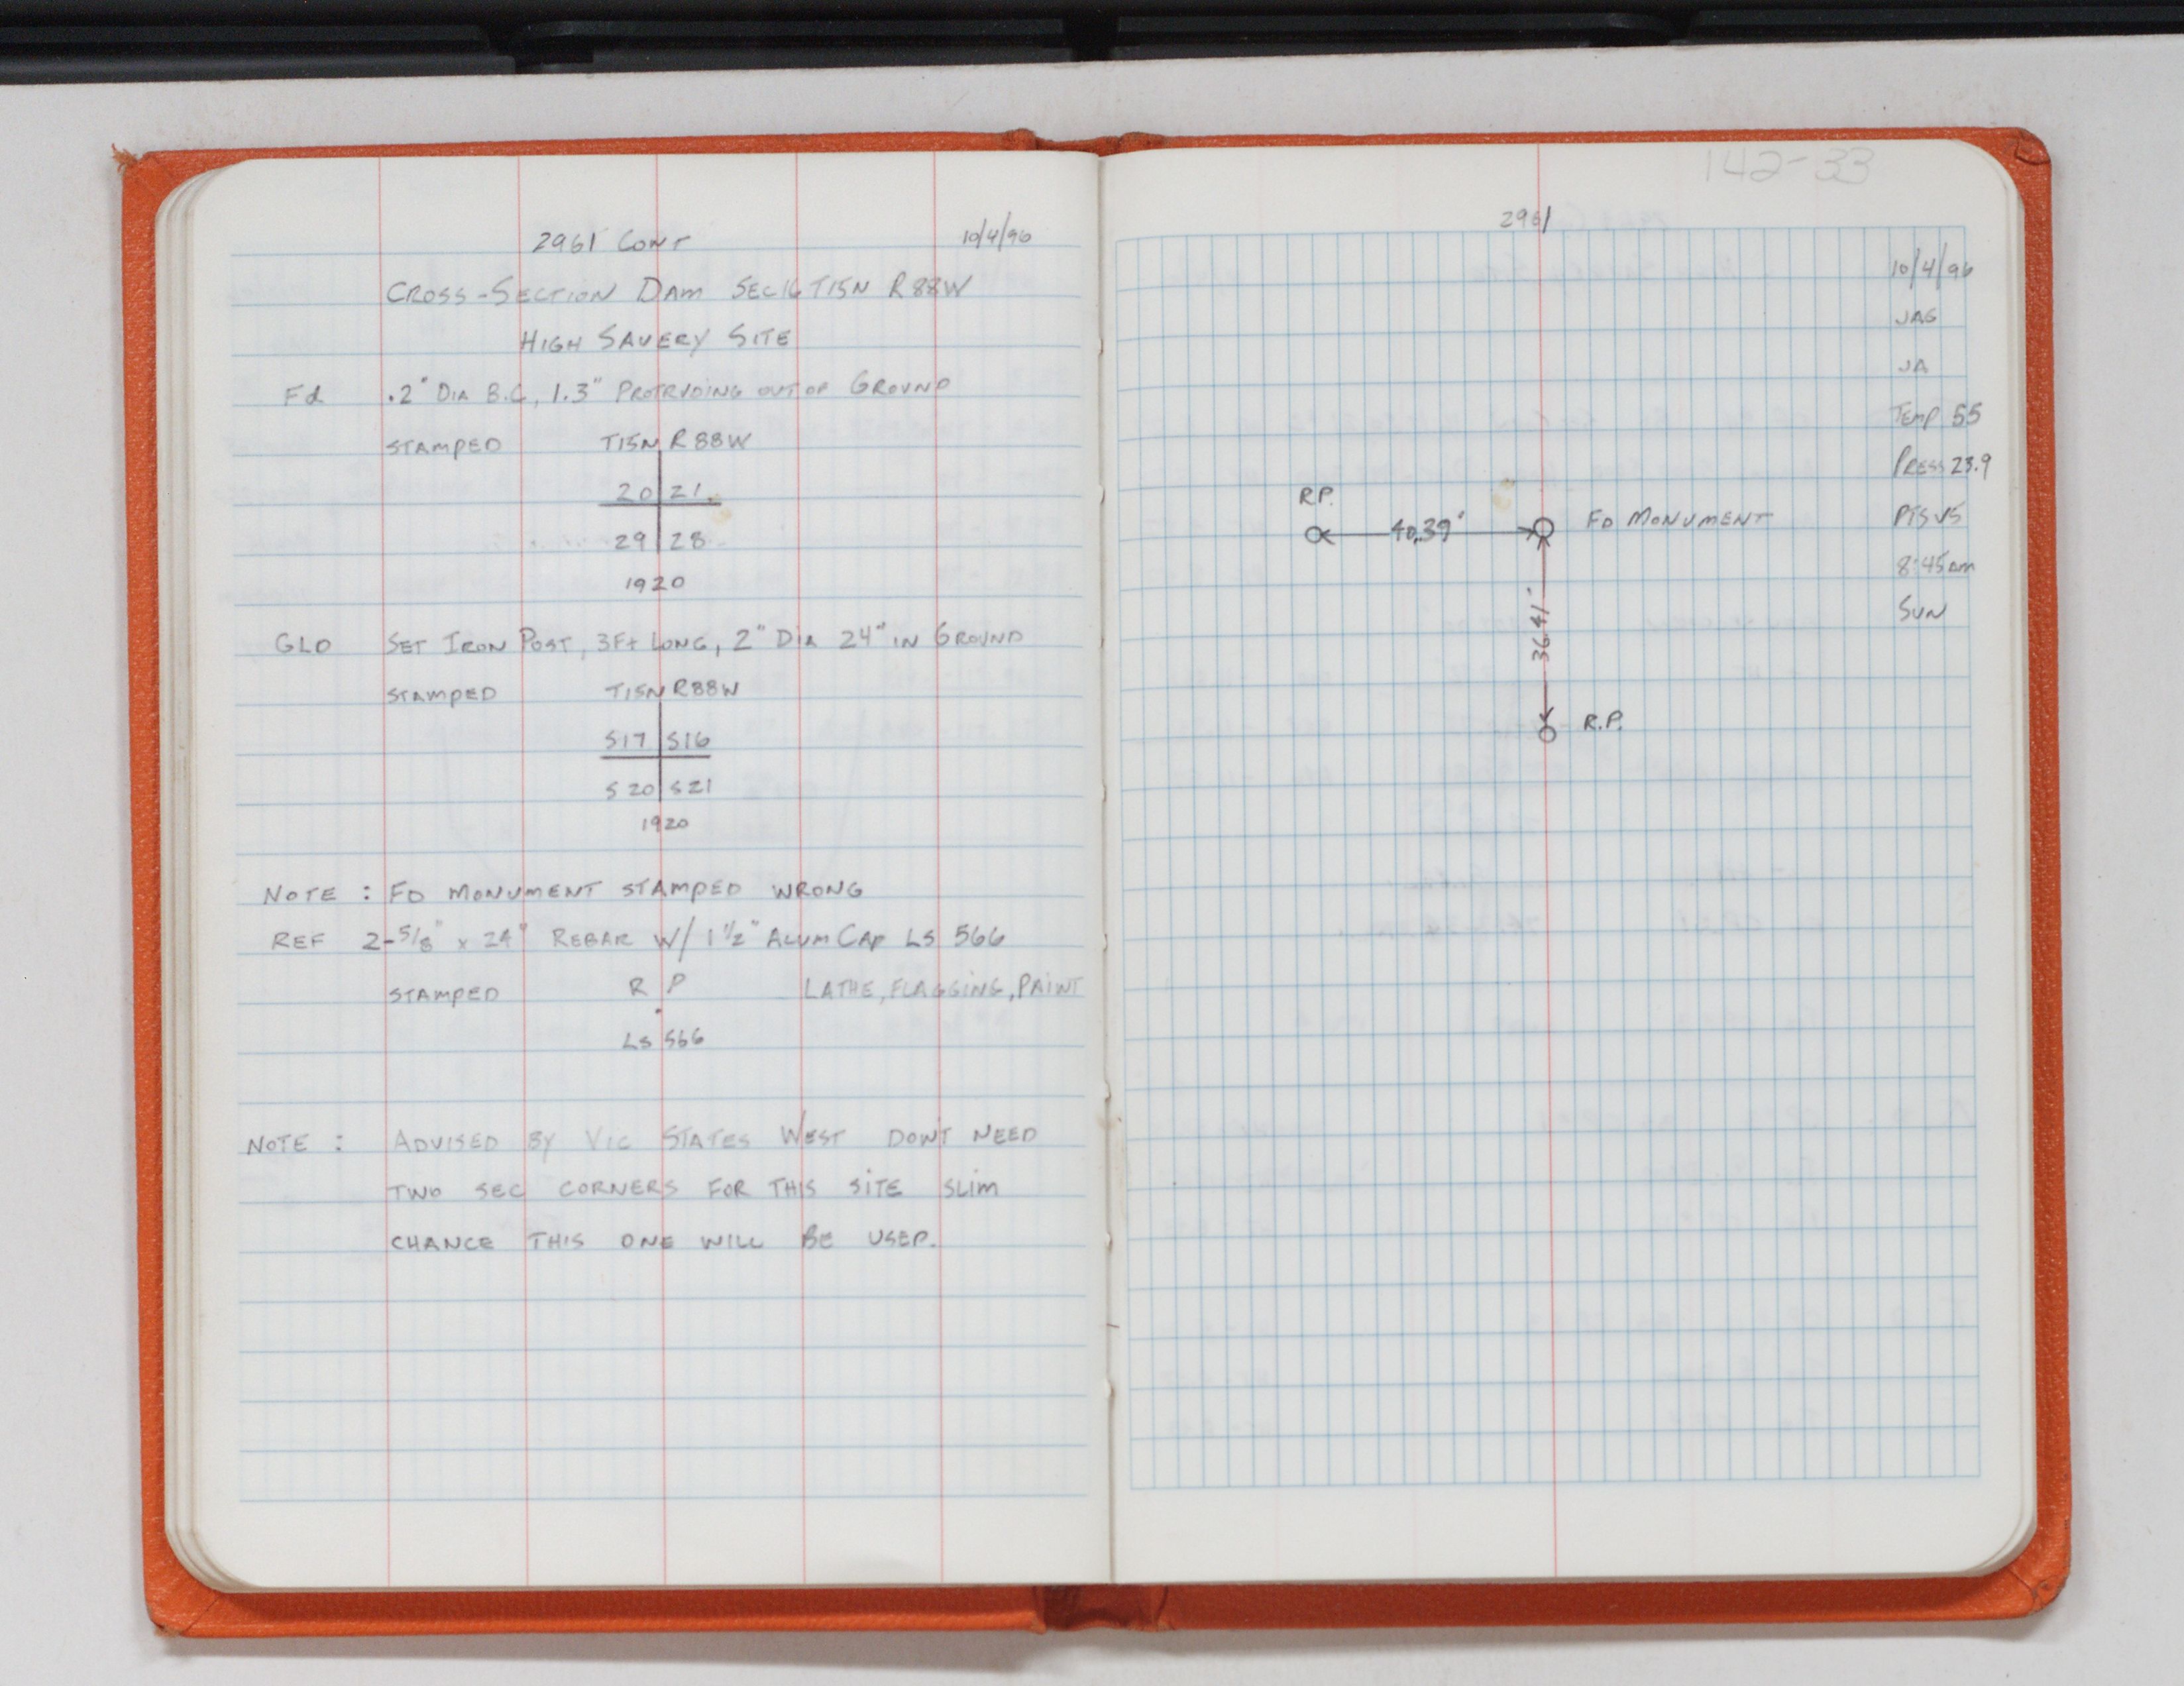 2961 CONT 10/4/96
CROSS-SECTION DAM SEC16 T15N R88W
HIGH SAVERY SITE
Fd .2" DIA B.C, 1.3" PROTRUDING OUT OF GROUND
STAMPED T15N R88W
20 21
29 28
1920
GLO SET IRON POST, 3Ft LONG, 2" DIA 24" IN GROUND
STAMPED T15N R88W
S17 S16
S20 S21
1920
NOTE : FD MONUMENT STAMPED WRONG
REF 2-5/8" x 24" REBAR W/ 1 1/2" ALUM CAP LS 566
STAMPED R P LATHE, FLAGGING, PAINT
LS 566
NOTE : ADVISED BY VIC STATES WEST DON'T NEED
TWO SEC CORNERS FOR THIS SITE SLIM
CHANCE THIS ONE WILL BE USED.
142-33
2961
10/4/96
JAG
JA
TEMP 55
PRESS 23.9
R.P.
40.39' FD MONUMENT
8:45am
SUN
36.41'
R.P.